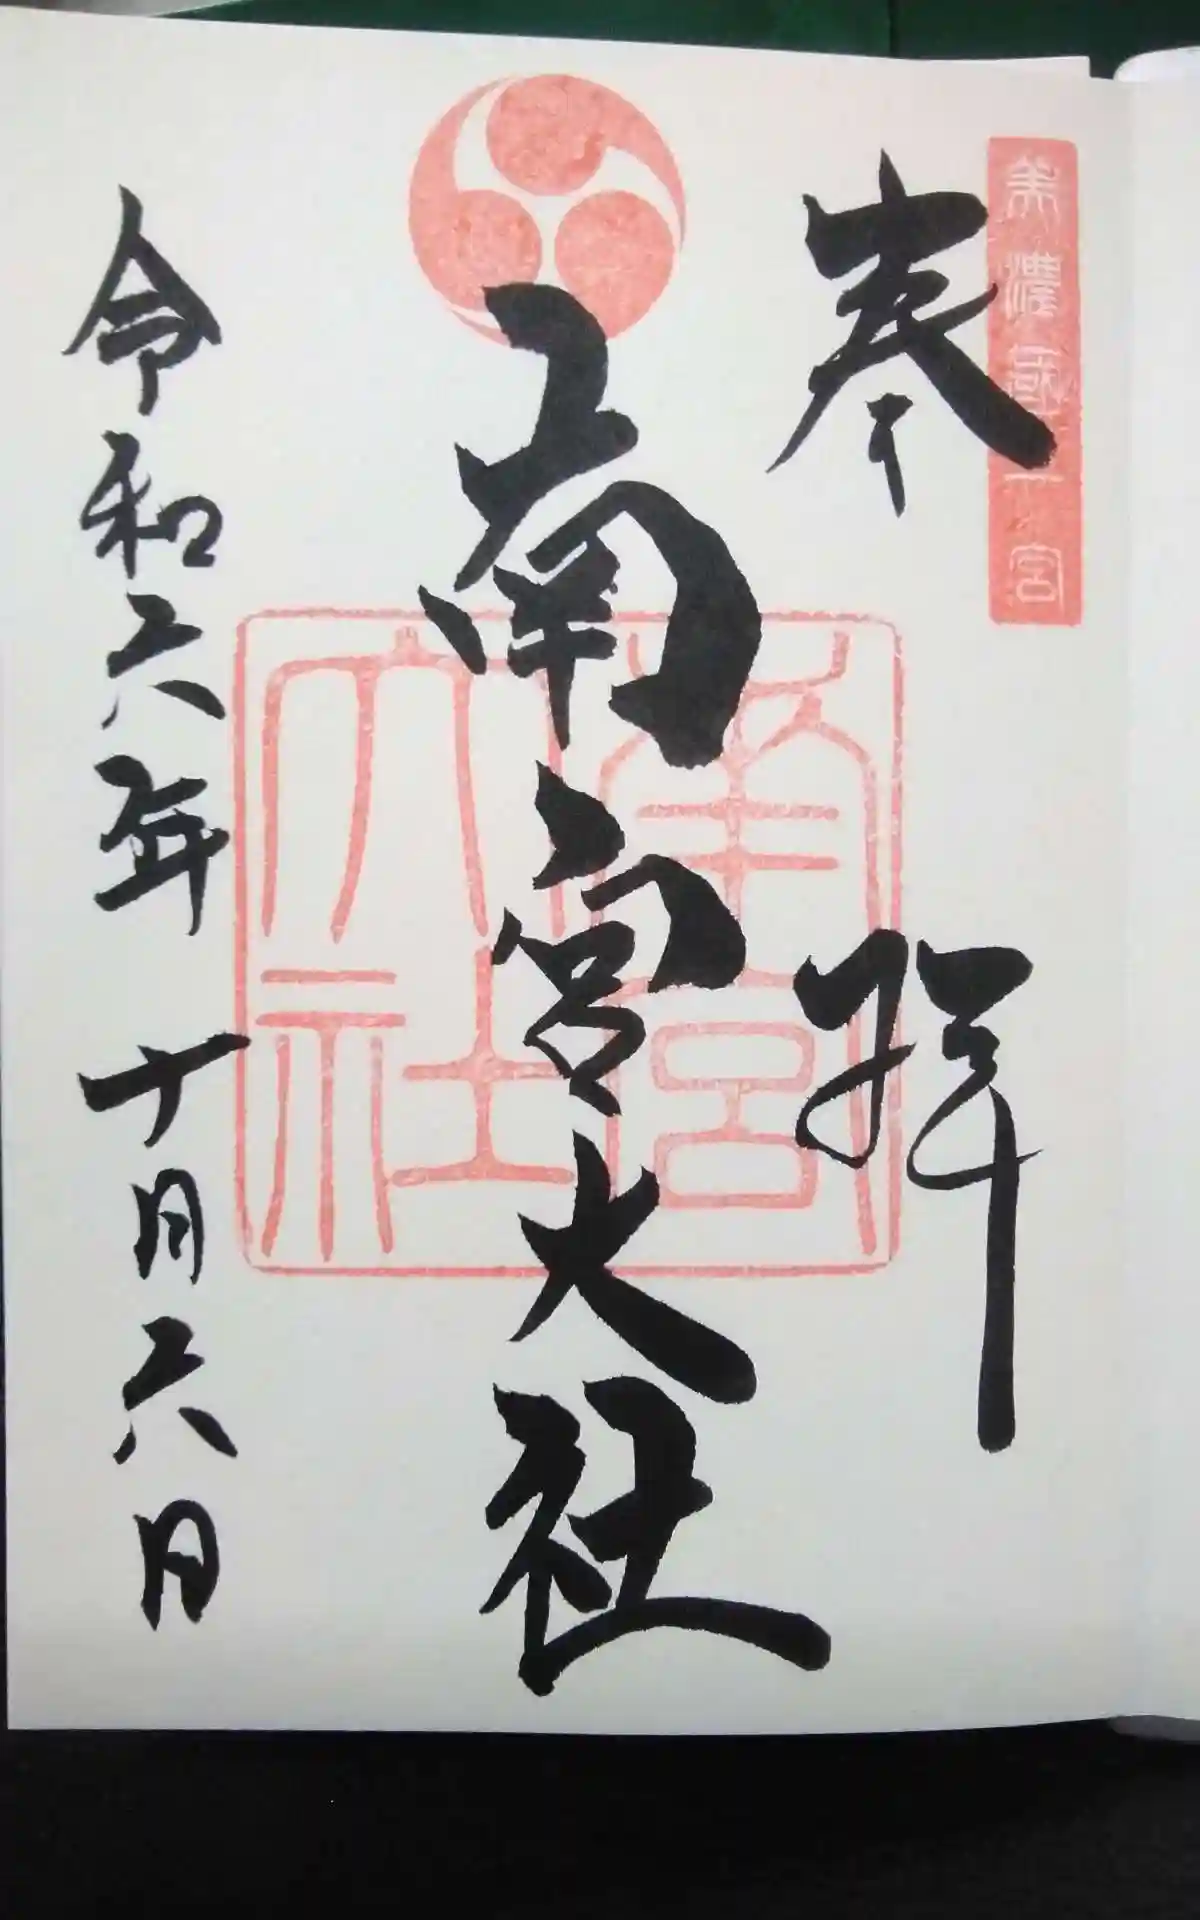 美濃國一ノ宮
奉拝
南宮大社
南宮大社
令和六年十月六日